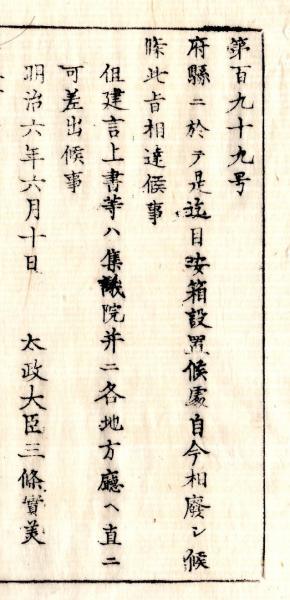 第百九十九号
府縣ニ於テ是迄目安箱設置候處自今相廢シ候
條此旨相達候事
但建言上書等ハ集議院并ニ各地方廳ヘ直ニ
可差出候事
明治六年六月十日　太政大臣三條實美